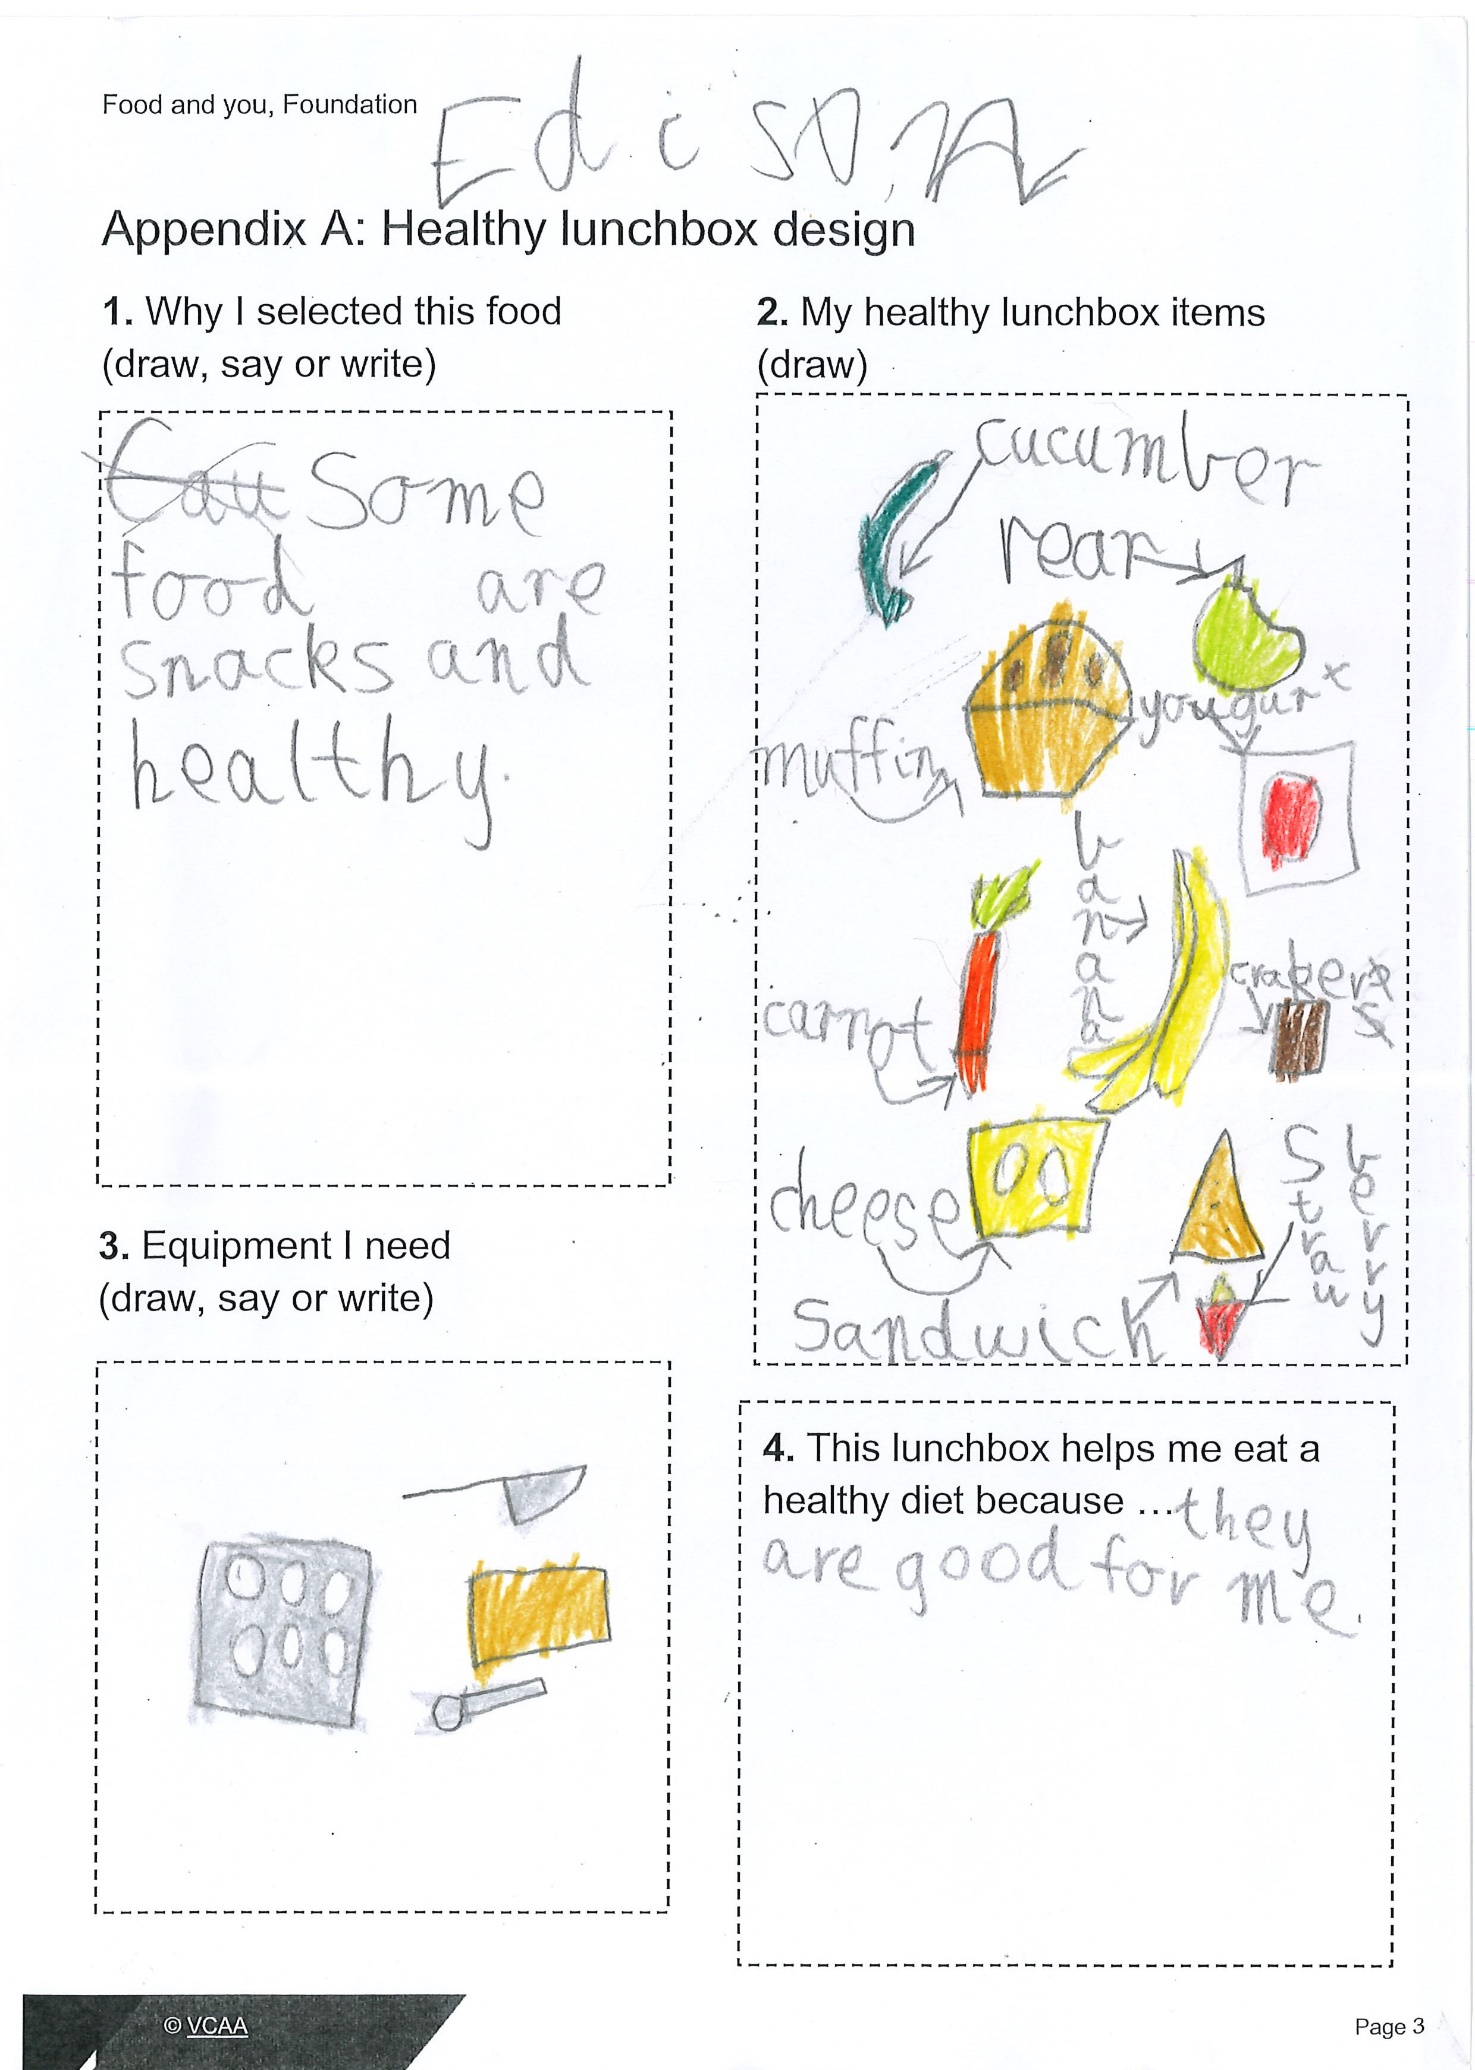 Food and you, Foundation
Edison
Appendix A: Healthy lunchbox design
1. Why I selected this food
(draw, say or write)
Some
food are
snacks and
healthy.
2. My healthy lunchbox items
(draw)
cucumber
rear
yougurt
muffin
banana
carrot
crakers
cheese
Straw
berry
Sandwich
3. Equipment I need
(draw, say or write)
4. This lunchbox helps me eat a
healthy diet because ... they
are good for me.
© VCAA
Page 3